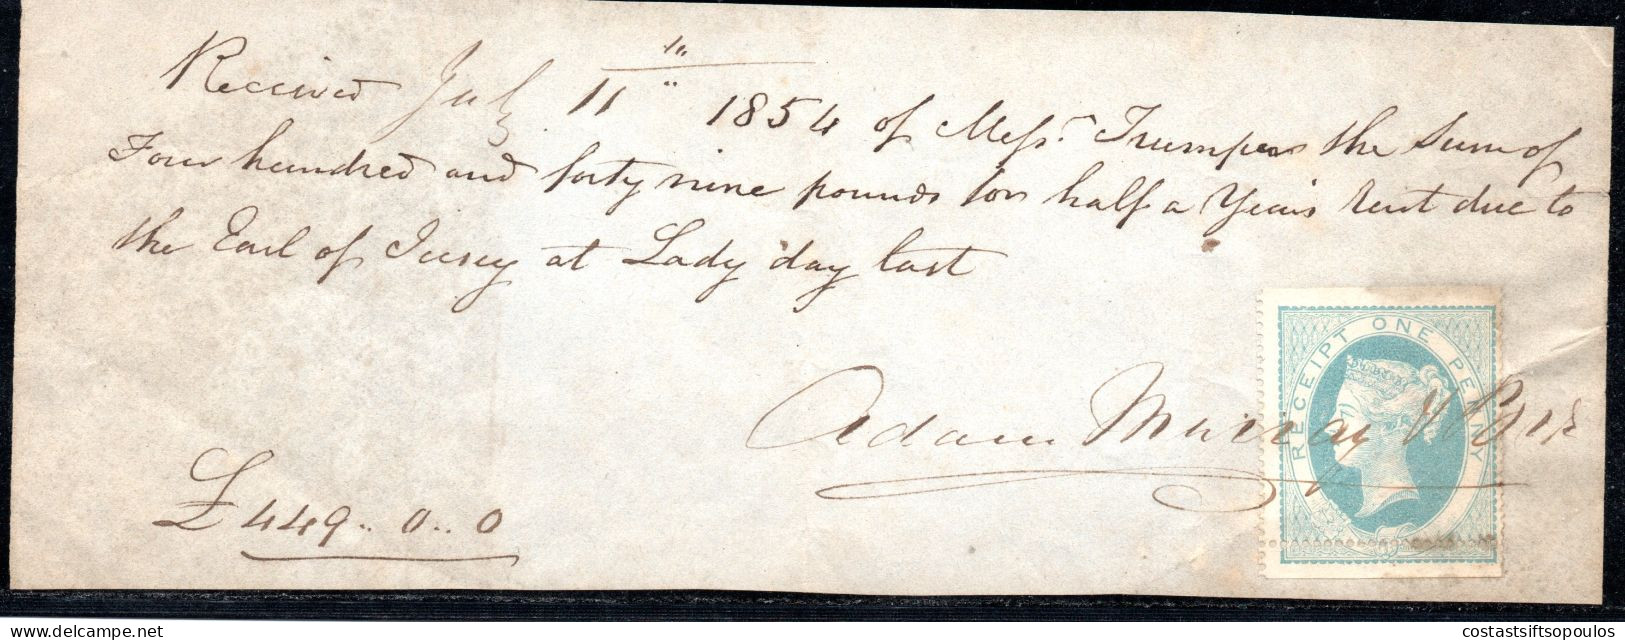 Received July 11 1854 of Messrs Trumper the Sum of
Four hundred and forty nine pounds for half a Years Rent due to
the Earl of Jersey at Lady day last
RECEIPT ONE PENNY
Adam Murray
£449.. 0.. 0
HipPostcard.com
costastsiftsopoulos